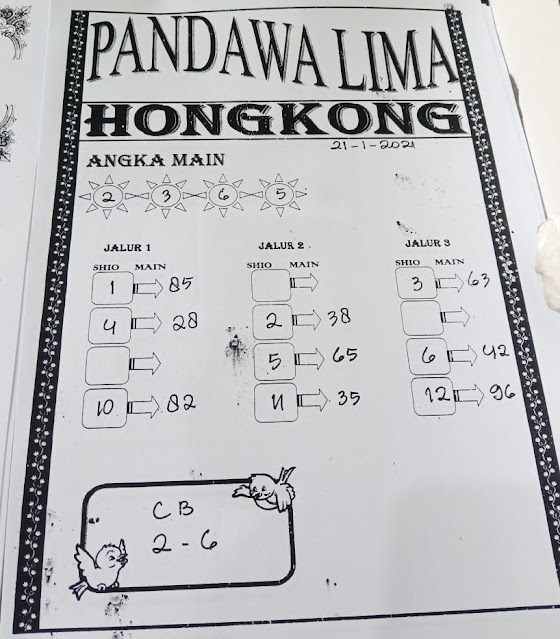 PANDAWA LIMA
HONGKONG
21-1-2021
ANGKA MAIN
2 3 6 5
JALUR 1
SHIO MAIN
1 85
4 28
10 82
JALUR 2
SHIO MAIN
2 38
5 65
11 35
JALUR 3
SHIO MAIN
3 63
6 42
12 96
CB
2 - 6